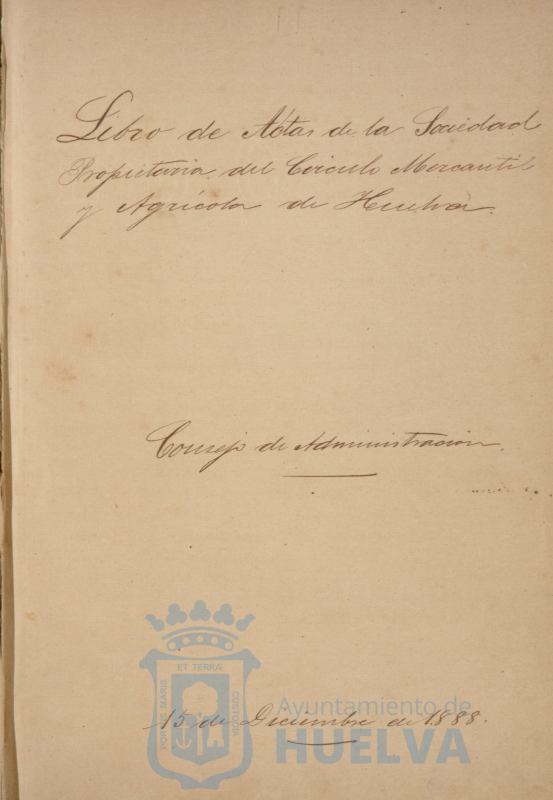 Libro de Actas de la Sociedad
Propietaria del Círculo Mercantil
y Agrícola de Huelva.
Consejo de Administración.
15 de Diciembre de 1888.
PORTUS MARIS ET TERRÆ CUSTODIA
Ayuntamiento de
HUELVA